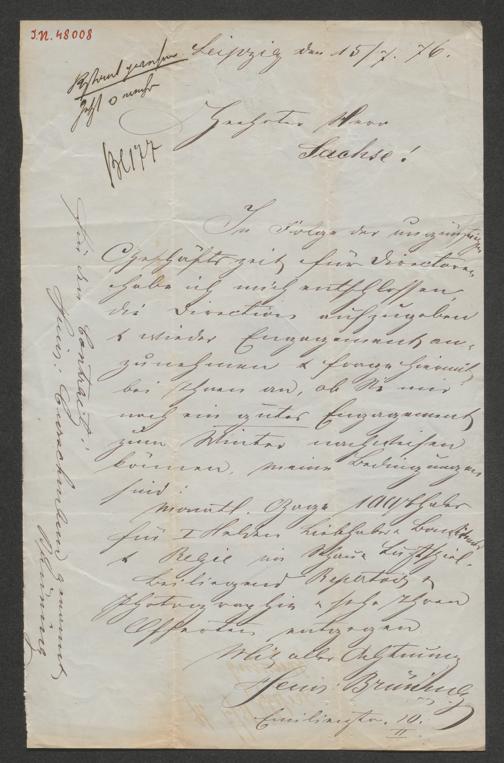 I.N. 48008
Leipzig den 15/7. 76.
jetzt 0 mehr
Geehrter Herr
Sachse!
In Folge der ungünstigen
Geschäftszeit für Directoren
habe ich mich entschlossen,
die Direction aufzugeben
& wieder Engagement an-
zunehmen & frage hiermit
bei Ihnen an, ob Sie mir
noch ein gutes Engagement
zum Winter nachweisen
können, meine Bedingungen
sind:
monatl. Gage 100 Thaler
für I Helden Liebhaber
& Regie im Schau & Lustspiel.
Beiliegend Repertoir &
Photographie & sehe Ihren
Offerten entgegen
Mit aller Achtung
Heinr: Brüning
Emilienstr. 10.
II
für den Contract:
Heinr: genannt
Brüning